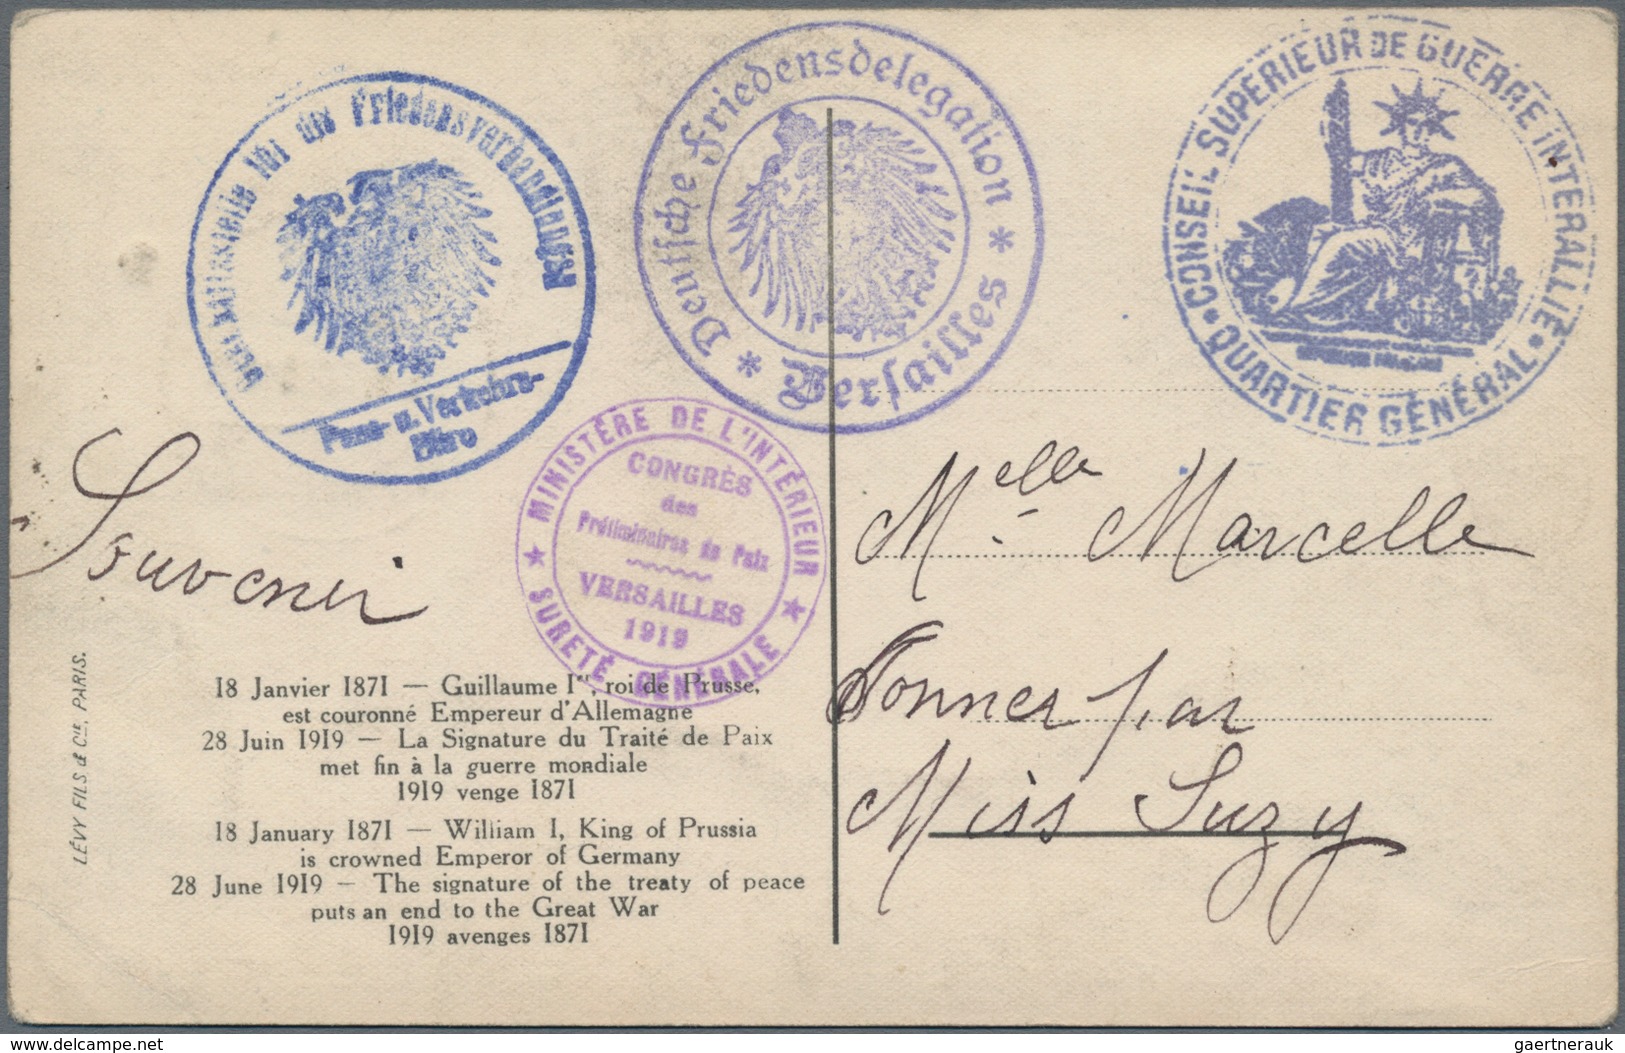 Geschäftsstelle für die Friedensverhandlungen
Pass- u. Verkehrs-
Büro
Deutsche Friedensdelegation
* Versailles *
CONSEIL SUPÉRIEUR DE GUERRE INTERALLIÉ
• QUARTIER GÉNÉRAL •
MINISTÈRE DE L'INTÉRIEUR
CONGRÈS
des
Préliminaires de Paix
VERSAILLES
1919
★ SURETÉ GÉNÉRALE ★
Souvenir
Melle Marcelle
Donner par
Miss Suzy
LÉVY FILS & Cie, PARIS.
18 Janvier 1871 — Guillaume Ier, roi de Prusse,
est couronné Empereur d'Allemagne
28 Juin 1919 — La Signature du Traité de Paix
met fin à la guerre mondiale
1919 venge 1871
18 January 1871 — William I, King of Prussia
is crowned Emperor of Germany
28 June 1919 — The signature of the treaty of peace
puts an end to the Great War
1919 avenges 1871
www.delcampe.net
gaertnerauk